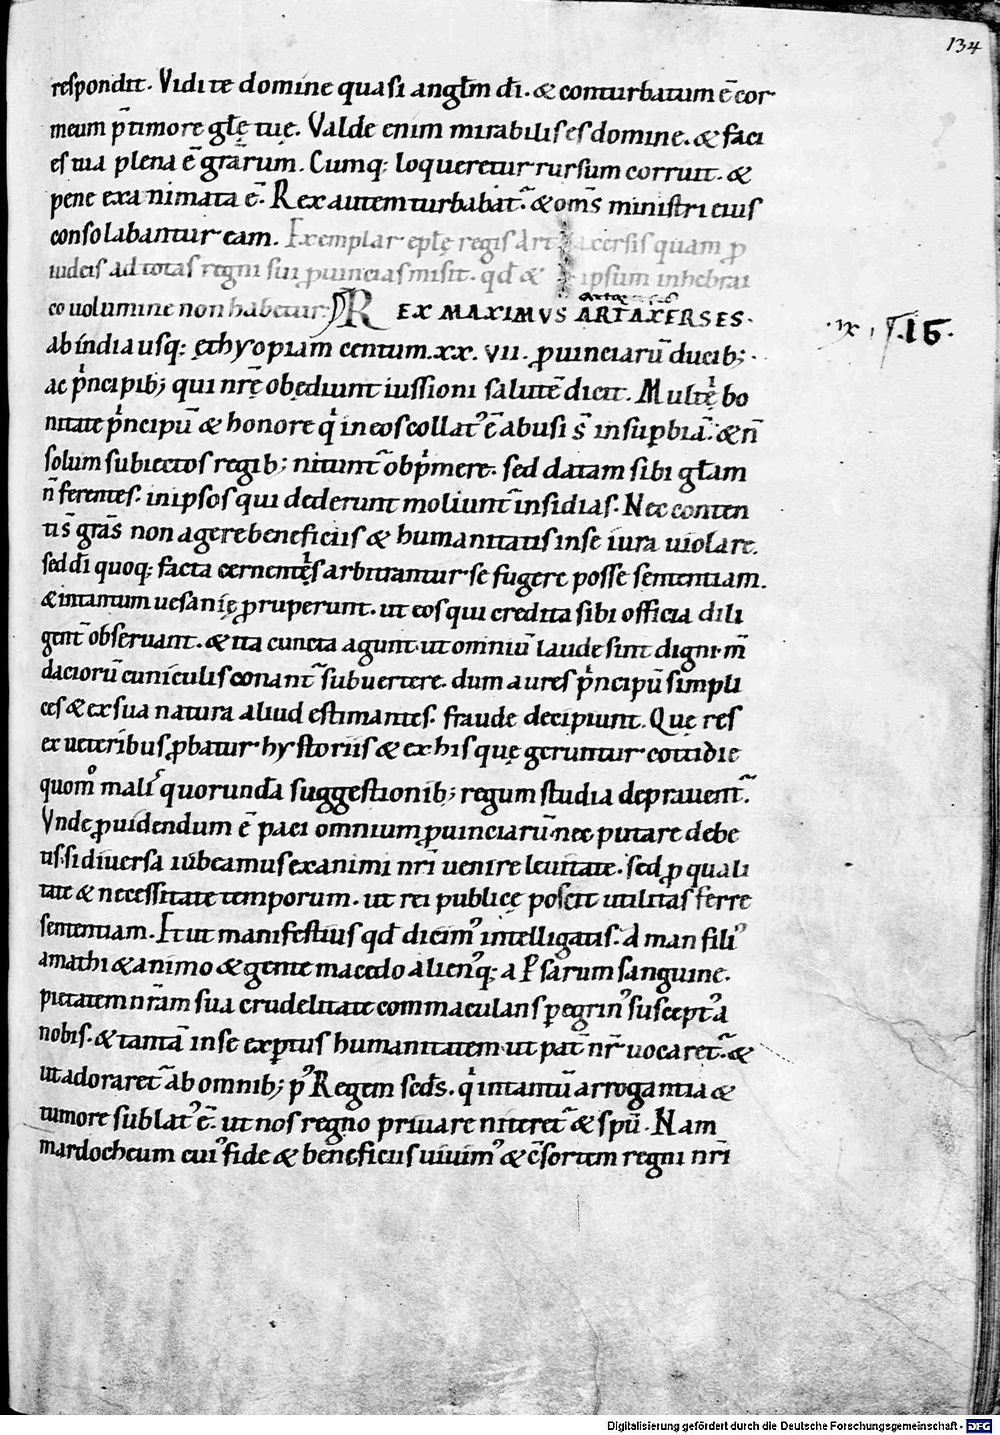 134
respondit. Vidi te domine quasi angl̄m dī. & conturbatum ē cor
meum p̄ timore gl̄ę tuę. Valde enim mirabilis es domine. & faci
es tua plena ē gr̄arum. Cumq; loqueretur rursum corruit. &
pene exanimata ē. Rex autem turbabat̄. & om̄s ministri eius
consolabantur eam. Exemplar epl̄ę regis Artaxersis quam ꝓ
iudeis ad totas regni sui ꝓuincias misit. qd̄ & ipsum in hebrai
co uolumine non habetur.
REX MAXIMVS ARTAXERSES.
.ıx 15.
ab india usq; ęthyopiam centum .xx. vii. ꝓuinciarū ducib;
ac pͥncipib; qui nr̄ę obędiunt iussioni salutē dicit. Multę bo
nitate pͥncipū & honore qͥ in eos collat᾽ ē abusi s̄ in suꝑbiā. & n̄
solum subiectos regib; nitunt̄ obpͥmere. sed datam sibi gl̄am
n̄ ferentes. in ipsos qui dederunt moliunt̄ insidias. Nec conten
ti s̄ gr̄as non agere beneficiis & humanitatis in se iura uiolare.
sed dī quoq; facta cernentͥęs arbitrantur se fugere posse sententiam.
& intantum uesanię ꝓruperunt. ut eos qui credita sibi officia dili
gent̄ obseruant. & ita cuncta agunt ut omniū laude sint digni m̄
daciorū cuniculis conant̄ subuertere. dum aures pͥncipū simpli
ces & ex sua natura aliud estimantes. fraude decipiunt. Quę res
ex ueteribus ꝓbatur hystoriis & ex his quę geruntur cottidie
quom̊ mali quorundā suggestionib; regum studia deprauent̄.
Vnde ꝓuidendum ē paci omnium ꝓuinciarū nec putare debe
tis. si diuersa iubeamus ex animi nr̄i uenire leuitate. sed ꝓ quali
tate & necessitate temporum. ut rei publicę poscit utilitas ferre
sententiam. Et ut manifestius qd̄ dicim᾽ intelligatis. Aman fili᾽
amathi & animo & gente macedo alien᾽q; a ꝑsarum sanguine.
pietatem nr̄am sua crudelitate commaculans ꝑegrin᾽ suscept᾽ a
nobis. & tantā in se exꝑtus humanitatem ut pat̄ nr̄ uocaret̄. &
ut adoraret̄ ab omnib; p᾽ Regem scds̄. qͥ intantū arrogantia &
tumore sublat᾽ ē. ut nos regno priuare niteret̄ & spū. Nam
mardocheum cui᾽ fide & beneficiis uiuim᾽ & c̄sortem regni nr̄i
Digitalisierung gefördert durch die Deutsche Forschungsgemeinschaft - DFG